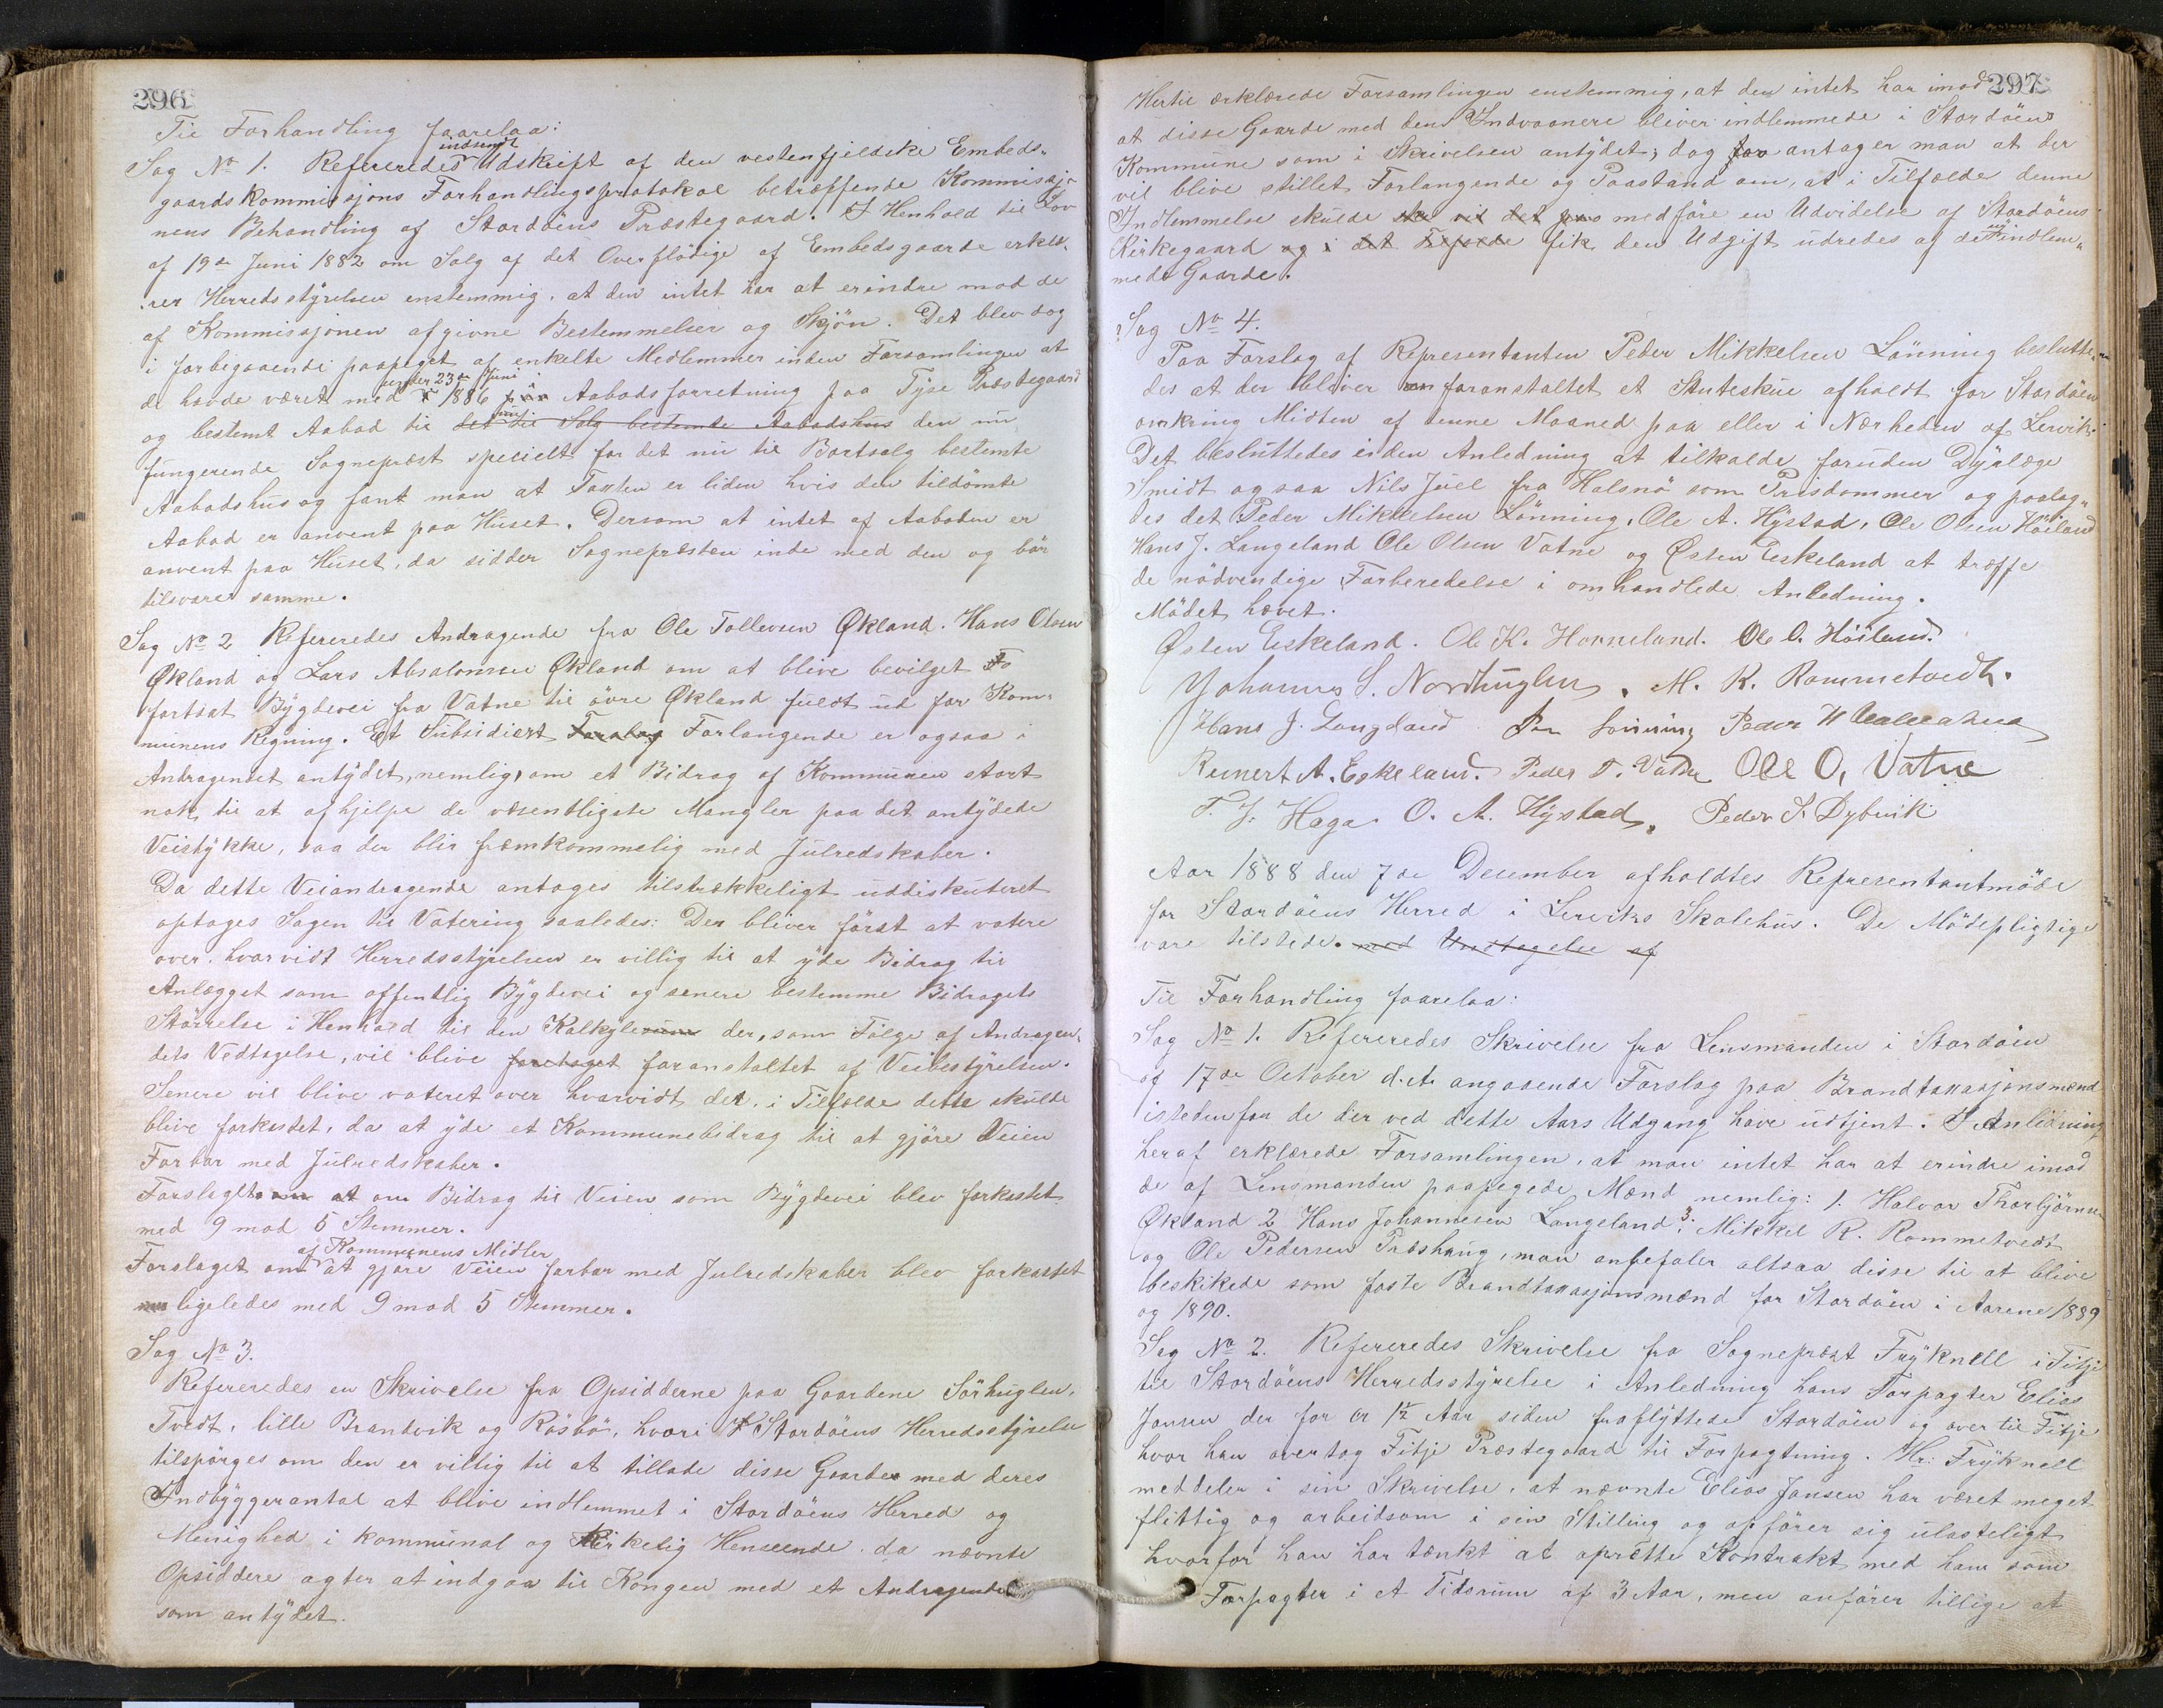 296
Til Forhandling forelaa:
Sag No 1. Refereredes indsendt Udskrift af den vestenfjeldske Embeds-
gaardskommissjons Forhandlingsprotokol betræffende Kommissjo-
nens Behandling af Stordöens Præstegaard. I Henhold til Lov
af 19de Juni 1882 om Salg af det Overflödige af Embedsgaarde erklæ-
rer Herredsstyrelsen enstemmig, at den intet har at erindre mod de
af Kommissjonen afgivne Bestemmelser og Skjön. Det blev dog
i forbigaaende paapeget af enkelte Medlemmer inden Forsamlingen at
de havde været med under 23de Juni 1886 i Aabodsforretning paa Tyse Præstegaard
og bestemt Aabod til det til Salg bestemte Aabodshus den nu
fungerende Sognepræst specielt for det nu til Bortsalg bestemte
Aabodshus og fant man at Taxten er liden hvis den tildömte
Aabod er anvent paa Huset. Dersom at intet af Aaboden er
anvent paa Huset, da sidder Sognepræsten inde med den og bör
tilsvare samme.
Sag No 2 Refereredes Andragende fra Ole Tollevsen Økland. Hans Olsen
Økland og Lars Absalonsen Økland om at blive bevilget
fortsat Bygdevei fra Vatne til övre Økland fuldt ud for Kom-
munens Regning. Et Subsidiært Forslag Forlangende er ogsaa i
Andragendet antydet, nemlig, om et Bidrag af Kommunen stort
nok til at afhjelpe de væsentligste Mangler paa det antydede
Veistykke, saa der blir fremkommelig med Julredskaber.
Da dette Veiandragende antages tilstrækkeligt uddiskuteret
optages Sagen til Votering saaledes: Der bliver först at votere
over, hvorvidt Herredsstyrelsen er villig til at yde Bidrag til
Anlægget som offentlig Bygdevei og senere bestemme Bidragets
Störrelse i Henhold til den Kalkyle der, som Fölge af Andragen-
dets Vedtagelse, vil blive foretaget foranstaltet af Veibestyrelsen.
Senere vil blive voteret over hvorvidt det, i Tilfælde dette skulde
blive forkastet, da at yde et Kommunebidrag til at gjöre Veien
Farbar med Julredskaber.
Forslaget om at om Bidrag til Veien som Bygdevei blev forkastet
med 9 mod 5 Stemmer.
Forslaget om af Kommunens Midler at gjöre Veien farbar med Julredskaber blev forkastet
ligeledes med 9 mod 5 Stemmer.
Sag No 3.
Refereredes en Skrivelse fra Opsidderne paa Gaardene Sörhuglen,
Tvedt, lille Brandvik og Rösbö, hvori Stordöens Herredsstyrelse
tilspörges om den er villig til at tillade disse Gaarder med deres
Indbyggerantal at blive indlemmet i Stordöens Herred og
Menighed i kommunal og Kirkelig Henseende, da nævnte
Opsiddere agter at indgaa til Kongen med et Andragende
som antydet.
297
Hertil erklærede Forsamlingen enstemmig, at den intet har imod
at disse Gaarde med dens Indvaanere bliver indlemmede i Stordöens
Kommune som i Skrivelsen antydet; dog antager man at der
vil blive stillet Forlangende og Paastand om, at i Tilfælde denne
Indlemmelse skulde medföre en Udvidelse af Stordöens
Kirkegaard og i det Tilfælde fik den Udgift udredes af de nyindlem-
mede Gaarde.
Sag No 4.
Paa Forslag af Representanten Peder Mikkelsen Lönning beslutte-
des at der bliver foranstaltet et Stuteskue afholdt for Stordöen
omkring Midten af denne Maaned paa eller i Nærheden af Lervik.
Det besluttedes i den Anledning at tilkalde foruden Dyrlæge
Smidt ogsaa Nils Juel fra Halsnö som Prisdommer og paalag-
des det Peder Mikkelsen Lönning, Ole A. Hystad, Ole Olsen Höiland
Hans J. Langeland Ole Olsen Vatne og Østen Eskeland at træffe
de nödvendige Forberedelse i omhandlede Anledning.
Mödet hævet.
Østen Eskeland. Ole K. Horneland. Ole O. Höiland.
Johannes S. Nordhuglen. M. R. Rommetvedt.
Hans J. Langeland Peder Lönning Peder
Reinert A. Eskeland. Peder T. Vatne Ole O, Vatne
T. J. Haga. O. A. Hystad, Peder S. Dybvik
Aar 1888 den 7de December afholdtes Representantmöde
for Stordöens Herred i Lerviks Skolehus. De Mödepligtige
vare tilstede. med Undtagelse af
Til Forhandling forelaa:
Sag No 1. Refereredes Skrivelse fra Lensmanden i Stordöen
af 17de October d.A. angaaende Forslag paa Brandtaxasjonsmænd
istedenfor de der ved dette Aars Udgang have udtjent. I Anledning
heraf erklærede Forsamlingen, at man intet har at erindre imod
de af Lensmanden paapegede Mænd nemlig: 1. Halvor Thorbjörnsen
Økland 2 Hans Johannesen Langeland 3. Mikkel R. Rommetvedt
og Ole Pedersen Præshaug, man anbefaler altsaa disse til at blive
beskikede som faste Brandtaxasjonsmænd for Stordöen i Aarene 1889
og 1890.
Sag No 2. Refereredes Skrivelse fra Sognepræst Fryknell i Fitje
til Stordöens Herredsstyrelse i Anledning hans Forpagter Elias
Jansen der for er 1½ Aar siden fraflyttede Stordöen og over til Fitje
hvor han overtog Fitje Præstegaard til Forpagtning. Hr: Fryknell
meddeler i sin Skrivelse, at nævnte Elias Jansen har været meget
flittig og arbeidsom i sin Stilling og opförer sig ulasteligt
hvorfor han har tænkt at oprette Kontrakt med ham som
Forpagter i et Tidsrum af 3 Aar, men anförer tillige at